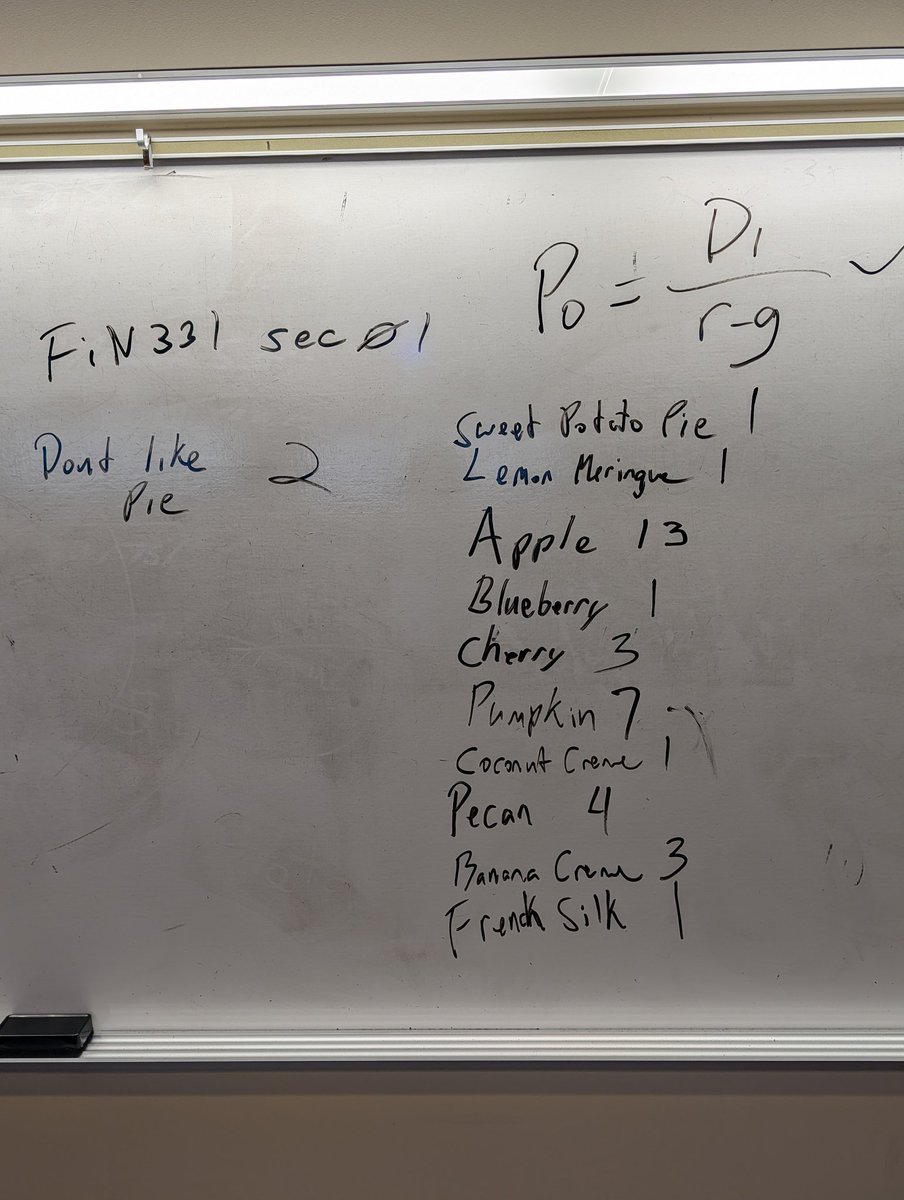 P0 = D1 / r-g ✓
FiN331 sec 01
Dont like 2
Pie
Sweet Potato Pie 1
Lemon Meringue 1
Apple 13
Blueberry 1
Cherry 3
Pumpkin 7
Coconut Creme 1
Pecan 4
Banana Creme 3
French Silk 1